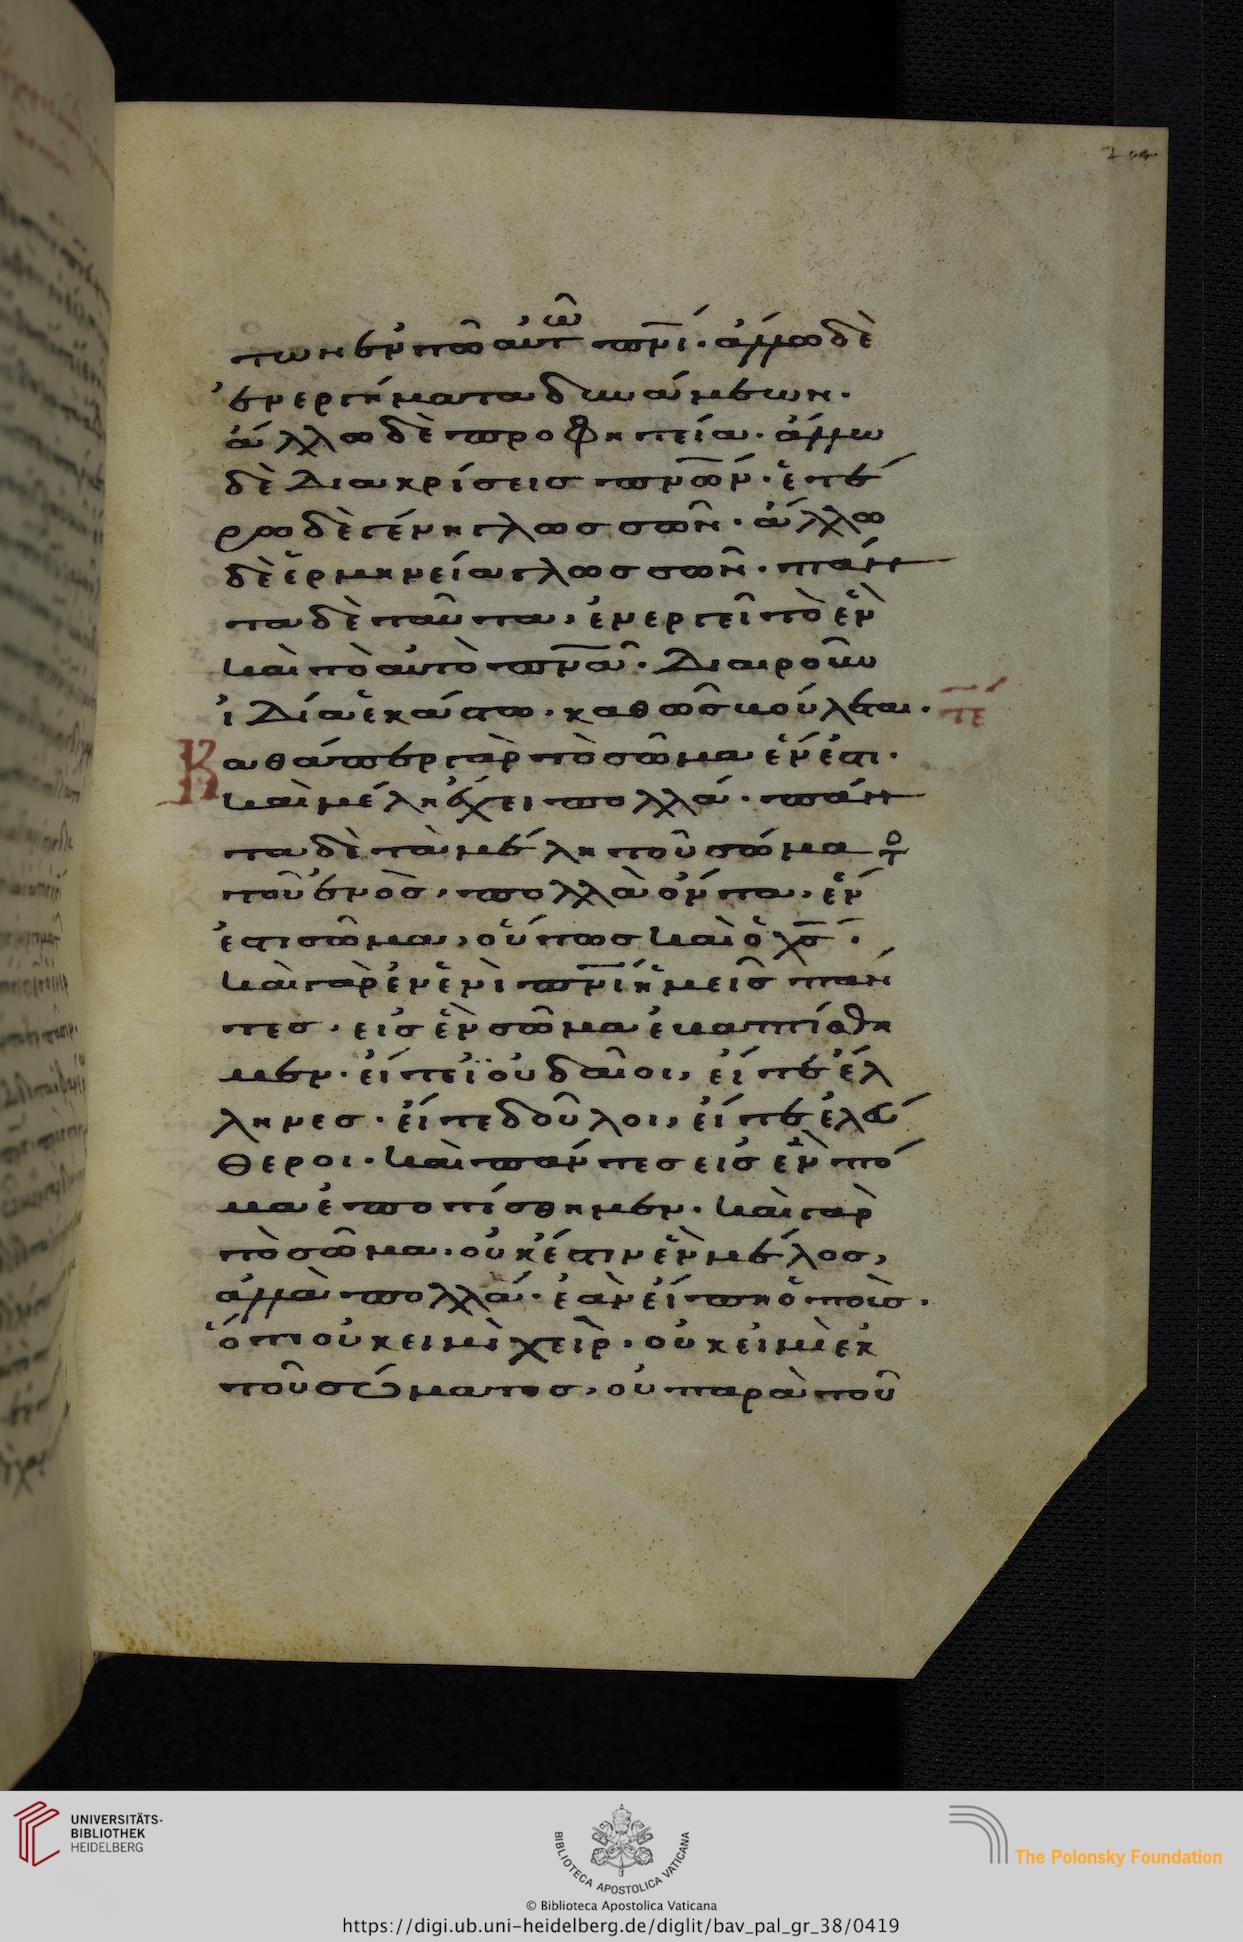 των ἐν τῶ αὐτῶ πνί· ἄλλω δὲ
ἐνεργήματα δυνάμεων·
ἄλλω δὲ προφητεία· ἄλλω
δὲ διακρίσεις πνων· ἑτέ
ρω δὲ γένη γλωσσῶν· ἄλλω
δὲ ἑρμηνεία γλωσσῶν· πάν
τα δὲ ταῦτα, ἐνεργεῖ τὸ ἓν
καὶ τὸ αὐτὸ πνα· διαιροῦν
ἰδία ἑκάστω· καθῶς βούλεται· πε
Καθάπερ γὰρ τὸ σῶμα ἕν ἐστι·
καὶ μέλη ἔχει πολλά· πάν
τα δὲ τὰ μέλη τοῦ σώμα
τοῦ ἑνὸς, πολλὰ ὄντα, ἕν
ἐστι σῶμα, οὕτως καὶ ὁ χς·
καὶ γὰρ ἐν ἑνὶ πνι ἡμεῖς πάν
τες· εἰς ἓν σῶμα ἐβαπτίσθη
μεν· εἴτε ϊουδαῖοι, εἴτε ἕλ
ληνες· εἴτε δοῦλοι, εἴτε ἐλεύ
θεροι· καὶ πάντες εἰς ἓν πό
μα ἐποτίσθημεν· καὶ γὰρ
τὸ σῶμα· οὐκ ἔστιν ἓν μέλος,
ἀλλὰ πολλά· ἐὰν εἴπη ὁ ποὺς·
ὅτι οὐκ εἰμὶ χεὶρ· οὐκ εἰμὶ ἐκ
τοῦ σώματος, οὐ παρὰ τοῦ
UNIVERSITÄTS-
BIBLIOTHEK
HEIDELBERG
BIBLIOTECA APOSTOLICA VATICANA
The Polonsky Foundation
© Biblioteca Apostolica Vaticana
https://digi.ub.uni-heidelberg.de/diglit/bav_pal_gr_38/0419